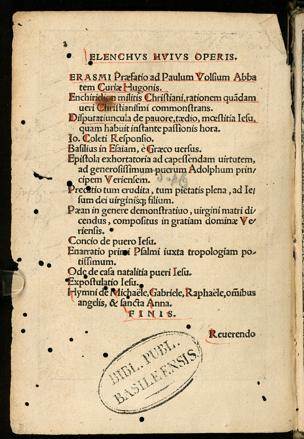 ELENCHVS HVIVS OPERIS.
ERASMI Præfatio ad Paulum Volsium Abba
tem Curiæ Hugonis.
Enchiridion militis Christiani, rationem quãdam
ueri Christianismi commonstrans.
Disputatiuncula de pauore, tædio, mœstitia Iesu,
quam habuit instante passionis hora.
Io. Coleti Responsio.
Basilius in Esaiam, è Græco uersus.
Epistola exhortatoria ad capessendam uirtutem,
ad generosissimum puerum Adolphum prin-
cipem Veriensem.
Precatio tum erudita, tum pietatis plena, ad Ie/
sum dei uirginisq; filium.
Pæan in genere demonstratiuo, uirgini matri di/
cendus, compositus in gratiam dominæ Ve/
riensis.
Concio de puero Iesu.
Enarratio primi Psalmi iuxta tropologiam po-
tissimum.
Ode de casa natalitia pueri Iesu.
Expostulatio Iesu.
Hymni de Michaële, Gabriele, Raphaële, om̃ibus
angelis, & sancta Anna.
FINIS.
Reuerendo
BIBL. PUBL.
BASILEENSIS.